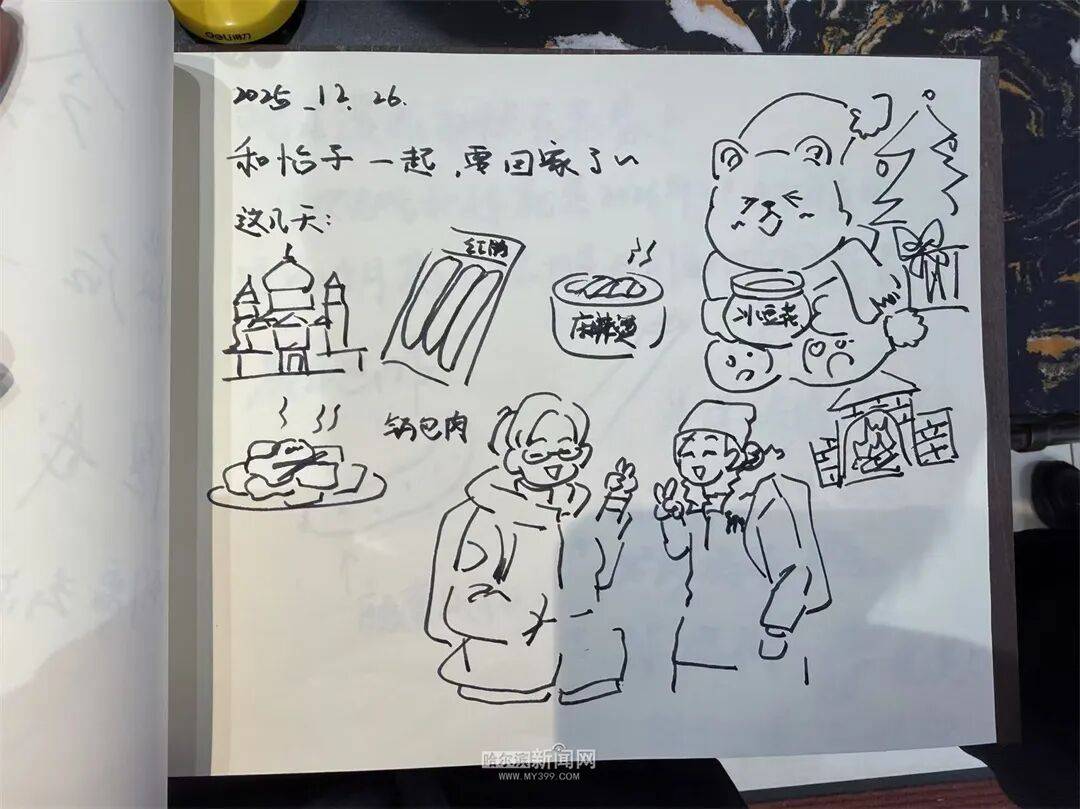 deli得力
2025_12.26.
和怡子一起,要回家了~
这几天:
红肠
麻辣烫
锅包肉
哈尔滨新闻网
WWW.MY399.COM